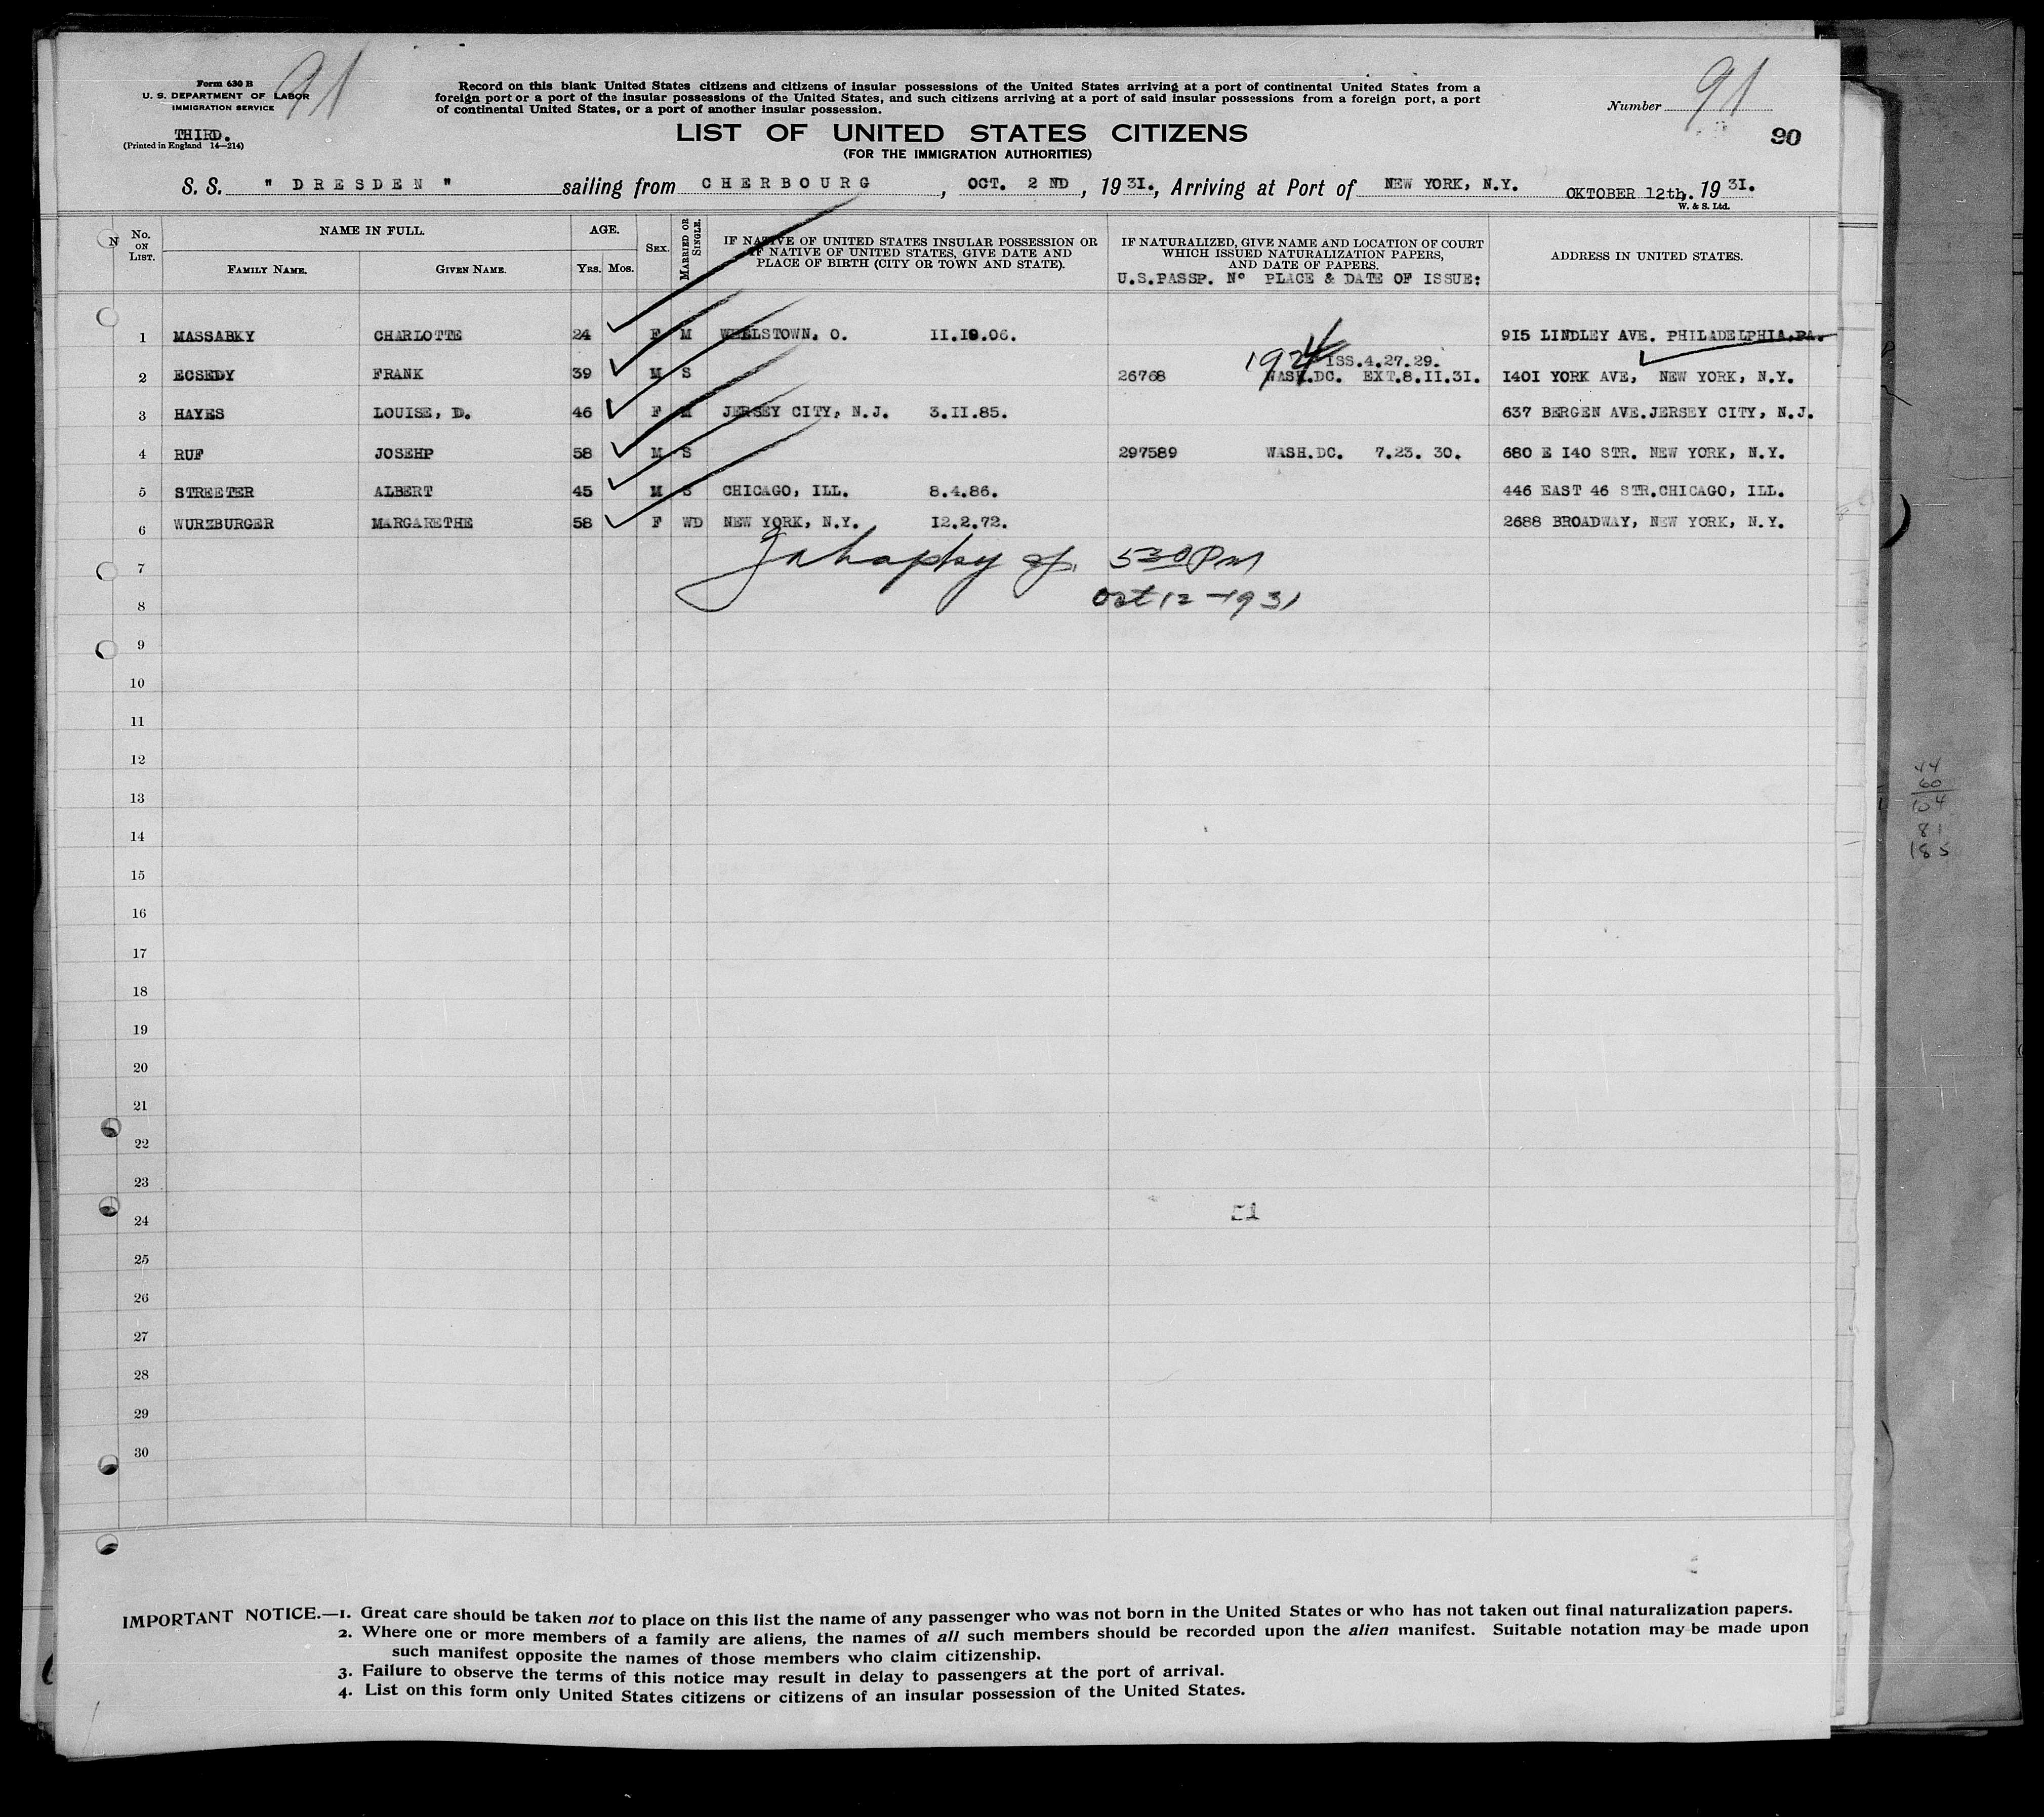 Form 630 B
U. S. DEPARTMENT OF LABOR
IMMIGRATION SERVICE
91
THIRD.
(Printed in England 14—214)
Record on this blank United States citizens and citizens of insular possessions of the United States arriving at a port of continental United States from a
foreign port or a port of the insular possessions of the United States, and such citizens arriving at a port of said insular possessions from a foreign port, a port
of continental United States, or a port of another insular possession.
Number 91
90
LIST OF UNITED STATES CITIZENS
(FOR THE IMMIGRATION AUTHORITIES)
S. S. " DRESDEN " sailing from CHERBOURG, OCT. 2 ND, 19 31., Arriving at Port of NEW YORK, N.Y. OKTOBER 12th. 19 31.
W. & S. Ltd.
N No. ON LIST. NAME IN FULL. AGE. SEX. MARRIED OR SINGLE. IF NATIVE OF UNITED STATES INSULAR POSSESSION OR IF NATIVE OF UNITED STATES, GIVE DATE AND PLACE OF BIRTH (CITY OR TOWN AND STATE). IF NATURALIZED, GIVE NAME AND LOCATION OF COURT WHICH ISSUED NATURALIZATION PAPERS, AND DATE OF PAPERS. ADDRESS IN UNITED STATES.
FAMILY NAME. GIVEN NAME. Yrs. Mos. U.S.PASSP. No PLACE & DATE OF ISSUE:
1 MASSABKY CHARLOTTE 24 F M WELLSTOWN. O. II.19.06. 915 LINDLEY AVE. PHILADELPHIA.PA.
1924 ISS.4.27.29.
2 ECSEDY FRANK 39 M S 26768 WASH.DC. EXT.8.II.31. I40I YORK AVE, NEW YORK, N.Y.
3 HAYES LOUISE, D. 46 F M JERSEY CITY, N.J. 3.II.85. 637 BERGEN AVE.JERSEY CITY, N.J.
4 RUF JOSEHP 58 M S 297589 WASH.DC. 7.23. 30. 680 E I40 STR. NEW YORK, N.Y.
5 STREETER ALBERT 45 M S CHICAGO, ILL. 8.4.86. 446 EAST 46 STR.CHICAGO, ILL.
6 WURZBURGER MARGARETHE 58 F WD NEW YORK, N.Y. I2.2.72. 2688 BROADWAY, NEW YORK, N.Y.
7 530 PM
8 Oct 12 - 1931
9
10
11
12
13
14
15
16
17
18
19
20
21
22
23
24
25
26
27
28
29
30
44
60
104
81
185
IMPORTANT NOTICE.—1. Great care should be taken not to place on this list the name of any passenger who was not born in the United States or who has not taken out final naturalization papers.
2. Where one or more members of a family are aliens, the names of all such members should be recorded upon the alien manifest. Suitable notation may be made upon
such manifest opposite the names of those members who claim citizenship.
3. Failure to observe the terms of this notice may result in delay to passengers at the port of arrival.
4. List on this form only United States citizens or citizens of an insular possession of the United States.